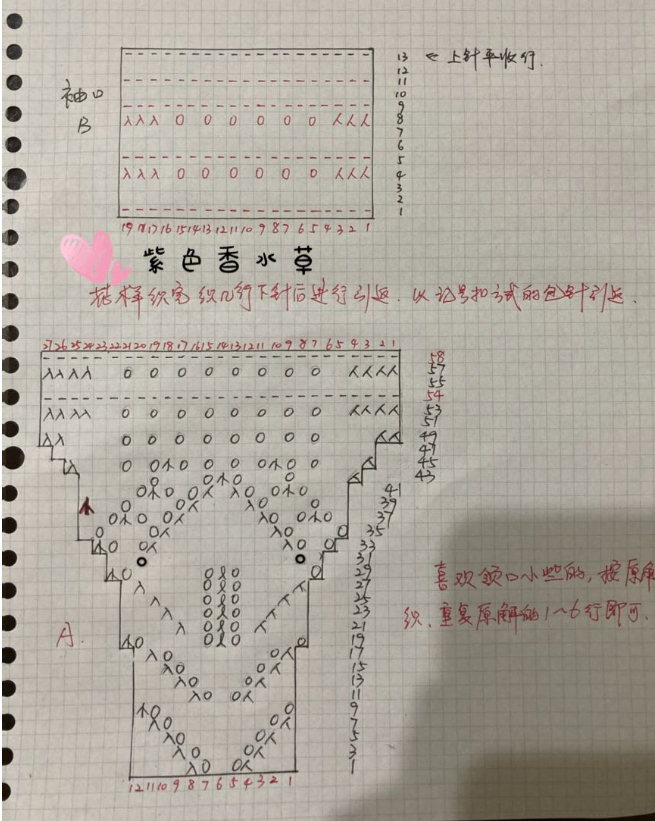 13 ← 上针平收行.
12
11
10
9
8
7
6
5
4
3
2
1
袖口
B
19 18 17 16 15 14 13 12 11 10 9 8 7 6 5 4 3 2 1
紫色香水草
花样织完织几行下针后进行引返. 以记号扣方式的包针引返.
27 26 25 24 23 22 21 20 19 18 17 16 15 14 13 12 11 10 9 8 7 6 5 4 3 2 1
58
57
55
54
53
51
49
47
45
43
41
39
37
35
33
31
29
27
25
23
21
19
17
15
13
11
9
7
5
3
1
喜欢领口小些的, 按原解
织. 重复原解的1~6行即可.
A.
12 11 10 9 8 7 6 5 4 3 2 1